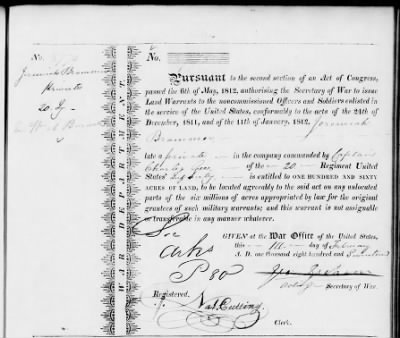 No.
No.
Jeremiah
Private
20
WAR DEPARTMENT.
Pursuant to the second section of an Act of Congress,
passed the 6th of May, 1812, authorising the Secretary of War to issue
Land Warrants to the noncommissioned Officers and Soldiers enlisted in the
service of the United States, conformably to the acts of the 24th of
December, 1811, and of the 11th of January, 1812. Jeremiah
late a private in the company commanded by Captain
of the 20 Regiment United
States' Infantry is entitled to ONE HUNDRED AND SIXTY
ACRES OF LAND, to be located agreeably to the said act on any unlocated
parts of the six millions of acres appropriated by law for the original
grantees of such military warrants; and this warrant is not assignable
or transferable in any manner whatever.
GIVEN at the War Office of the United States,
this day of February
A. D. one thousand eight hundred and
Secretary of War.
Registered.
Nat. Cutting,
Clerk.